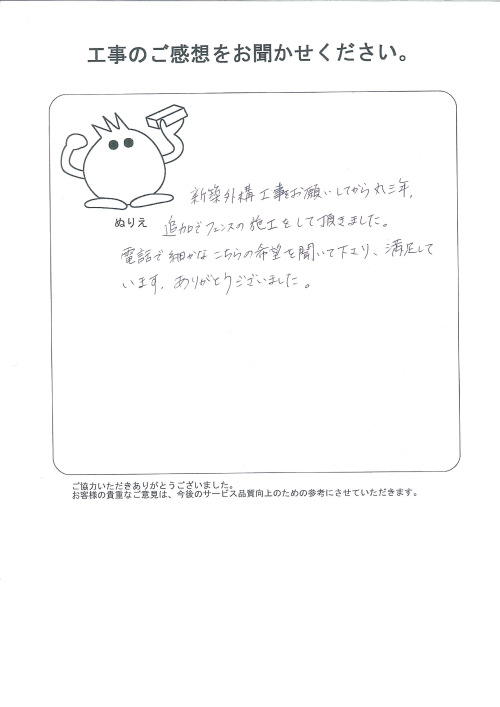 工事のご感想をお聞かせください。
新築外構工事をお願いしてから丸三年、
ぬりえ
追加でフェンスの施工をして頂きました。
電話で細かなこちらの希望を聞いて下さり、満足して
います。ありがとうございました。
ご協力いただきありがとうございました。
お客様の貴重なご意見は、今後のサービス品質向上のための参考にさせていただきます。